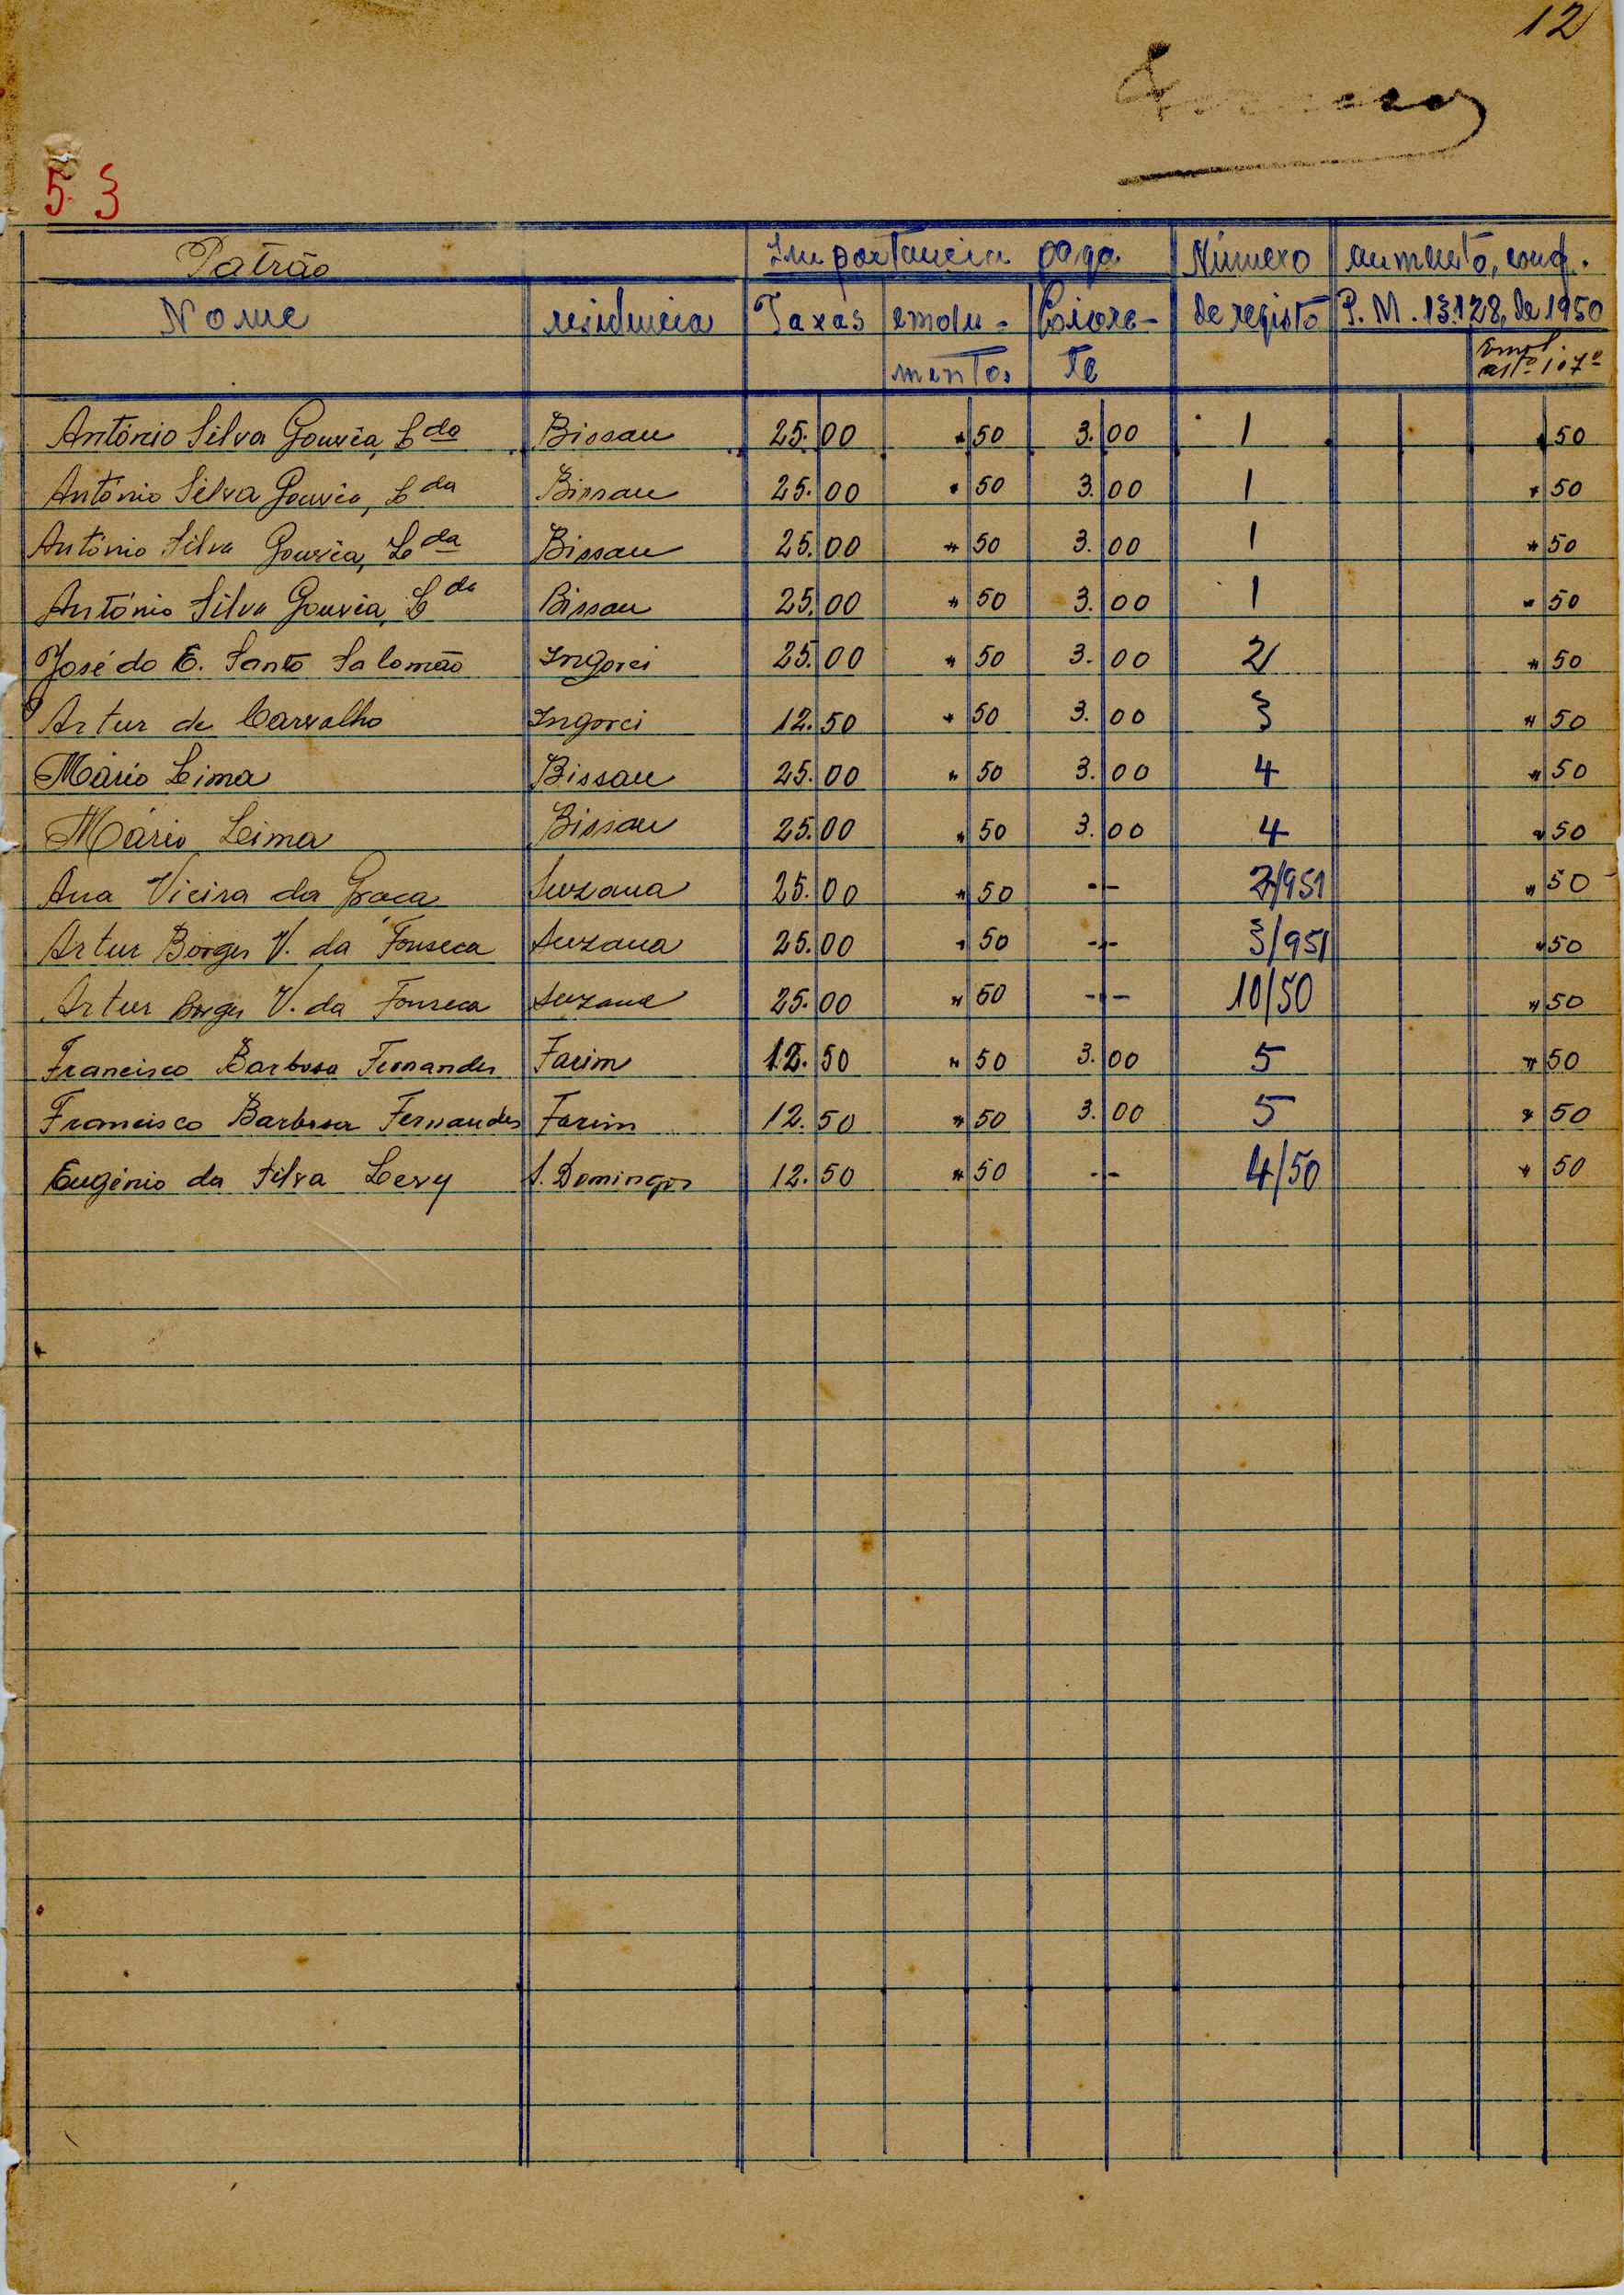 12
5. 3
Patrão Importancia paga Número aumento, conf.
Nome residencia Taxas emolu- de registo P. M. 13128, de 1950
mentos te Emol. artº 107º
António Silva Gouvêa, Lda Bissau 25.00 " 50 3.00 1 " 50
António Silva Gouvêa, Lda Bissau 25.00 " 50 3.00 1 " 50
António Silva Gouvêa, Lda Bissau 25.00 " 50 3.00 1 " 50
António Silva Gouvêa, Lda Bissau 25.00 " 50 3.00 1 " 50
José do E. Santo Salomão Ingorei 25.00 " 50 3.00 2 " 50
Artur de Carvalho Ingorei 12.50 " 50 3.00 3 " 50
Mário Lima Bissau 25.00 " 50 3.00 4 " 50
Mário Lima Bissau 25.00 " 50 3.00 4 " 50
Ana Vieira da Graca Suzana 25.00 " 50 -- 2/951 " 50
Artur Borges V. da Fonseca Suzana 25.00 " 50 -- 3/951 " 50
Artur Borges V. da Fonseca Suzana 25.00 " 50 -- 10/50 " 50
Francisco Barbosa Fernandes Farim 12.50 " 50 3.00 5 " 50
Francisco Barbosa Fernandes Farim 12.50 " 50 3.00 5 " 50
Eugénio da Silva Levy S. Domingos 12.50 " 50 -- 4/50 " 50